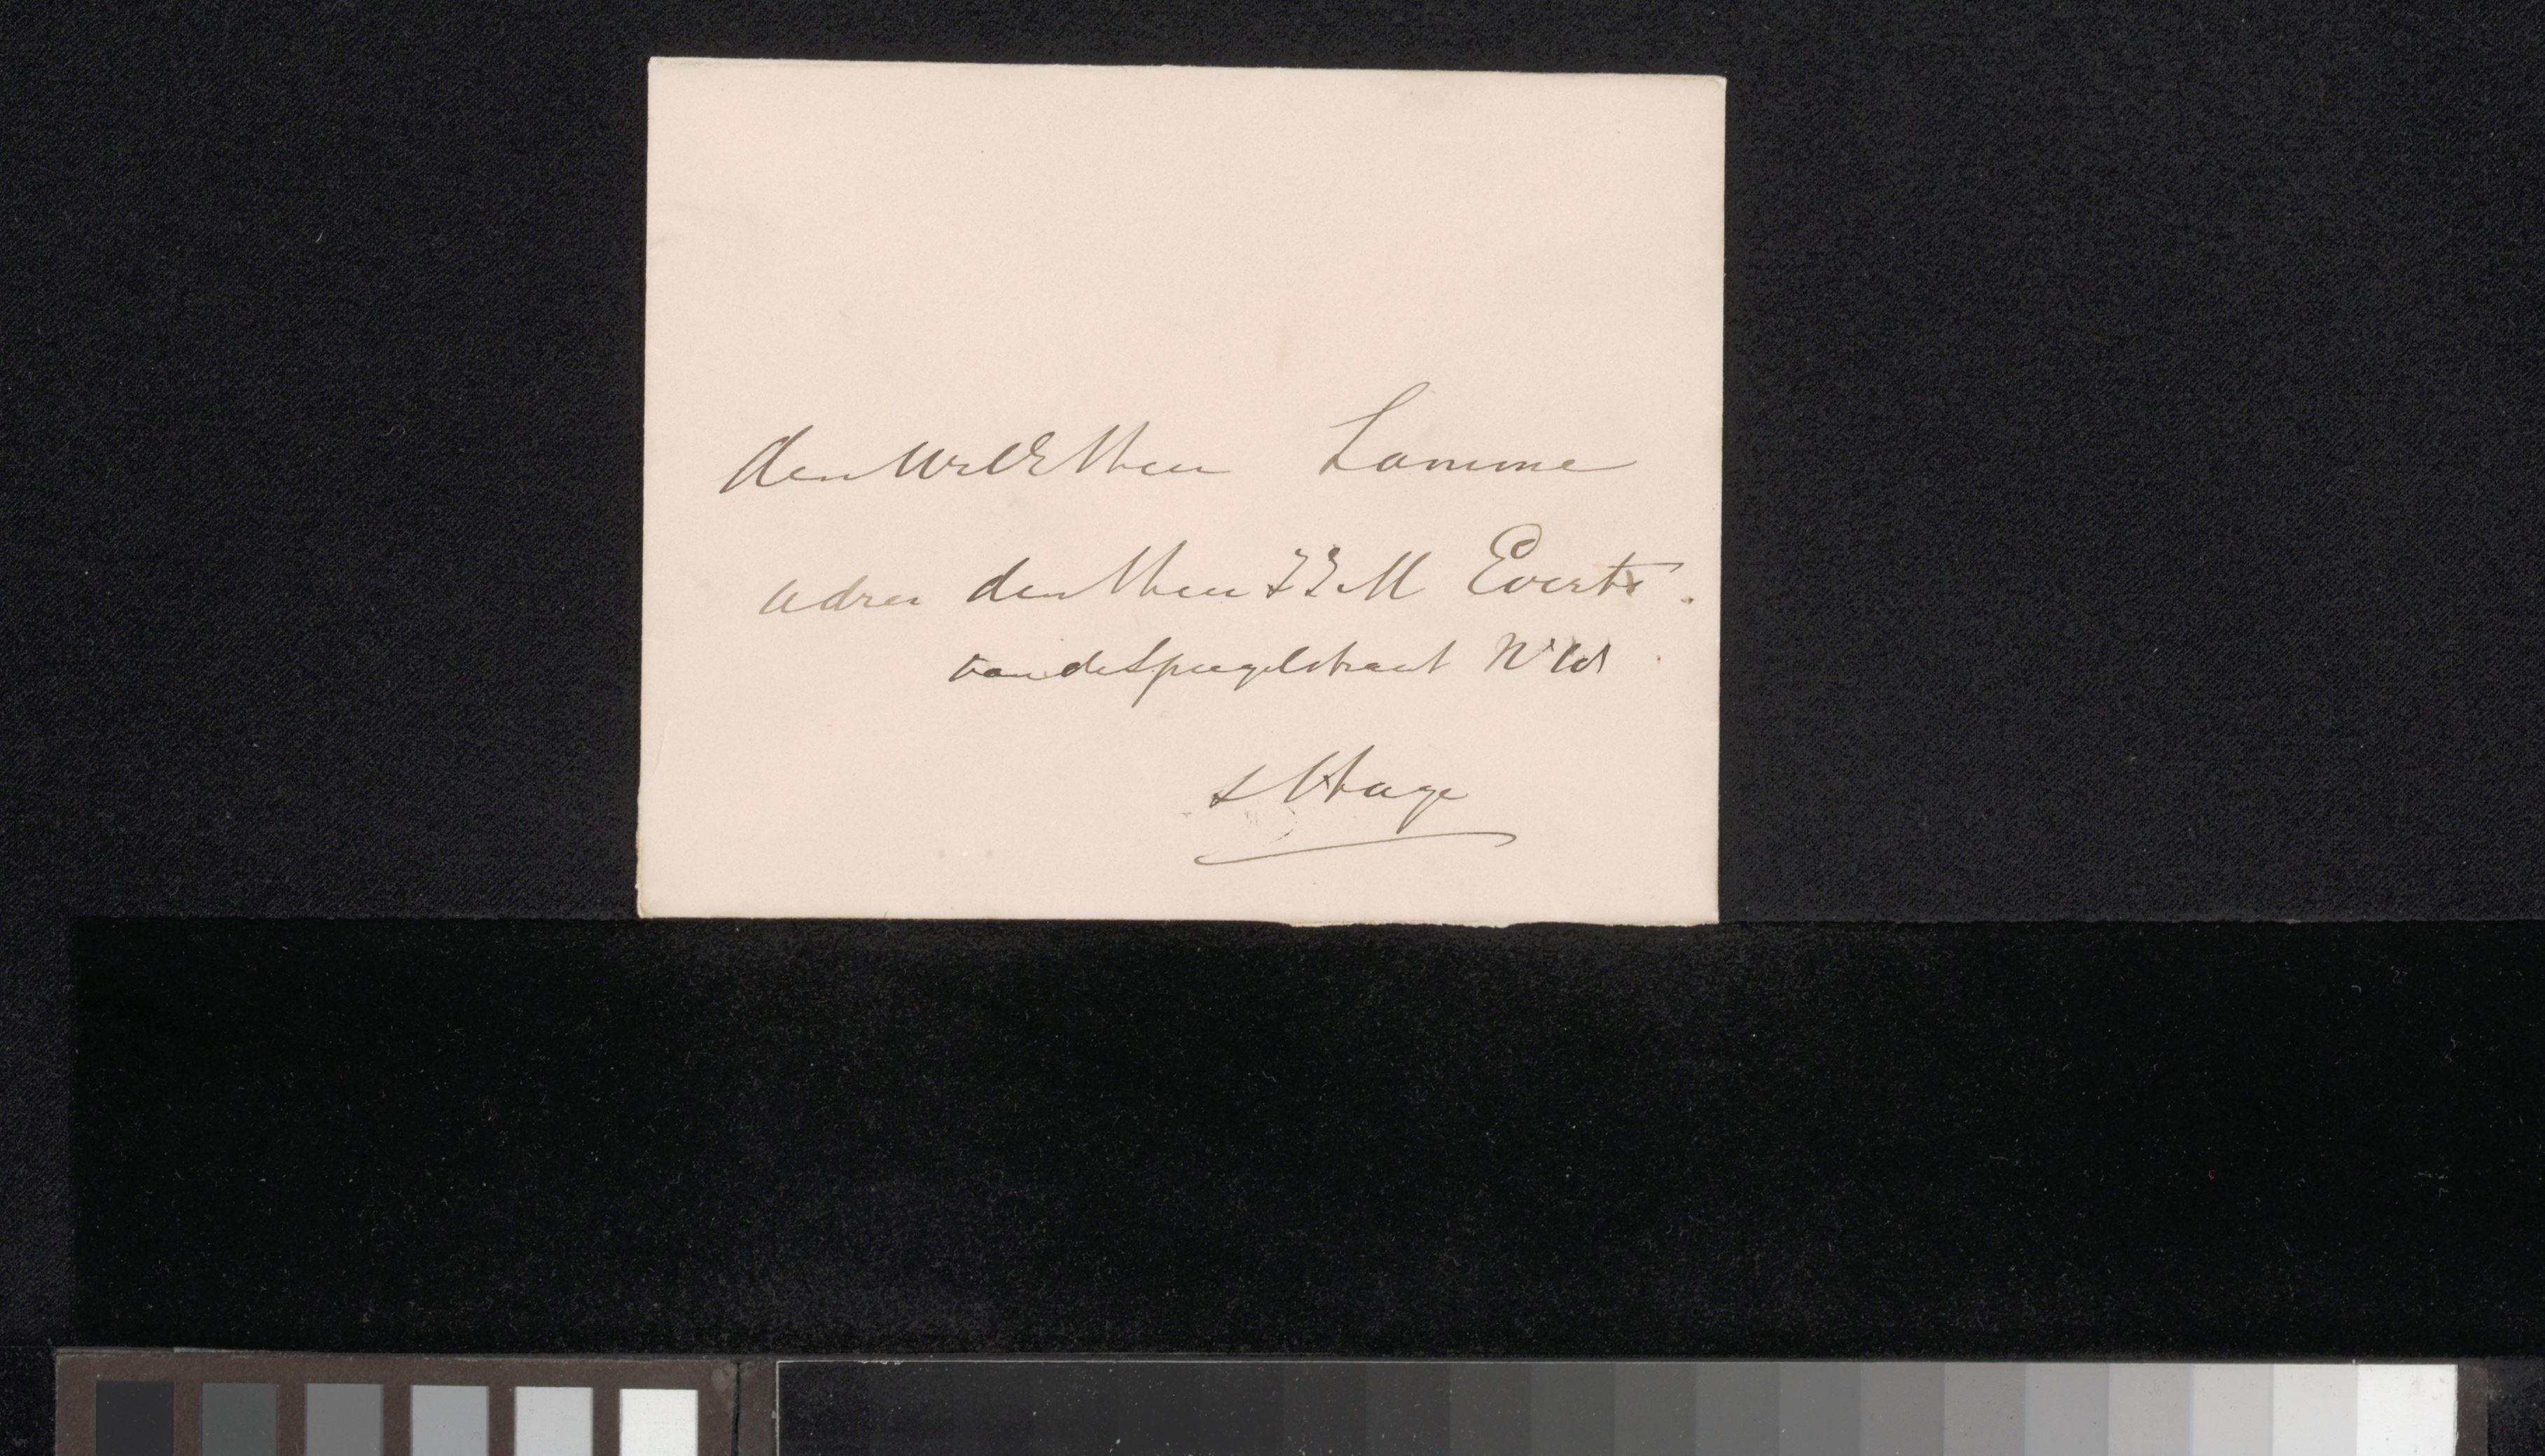 den WelE Heer Lamme
adres den Heer J E M Everts.
van de Spiegelstraat N°
s Hage